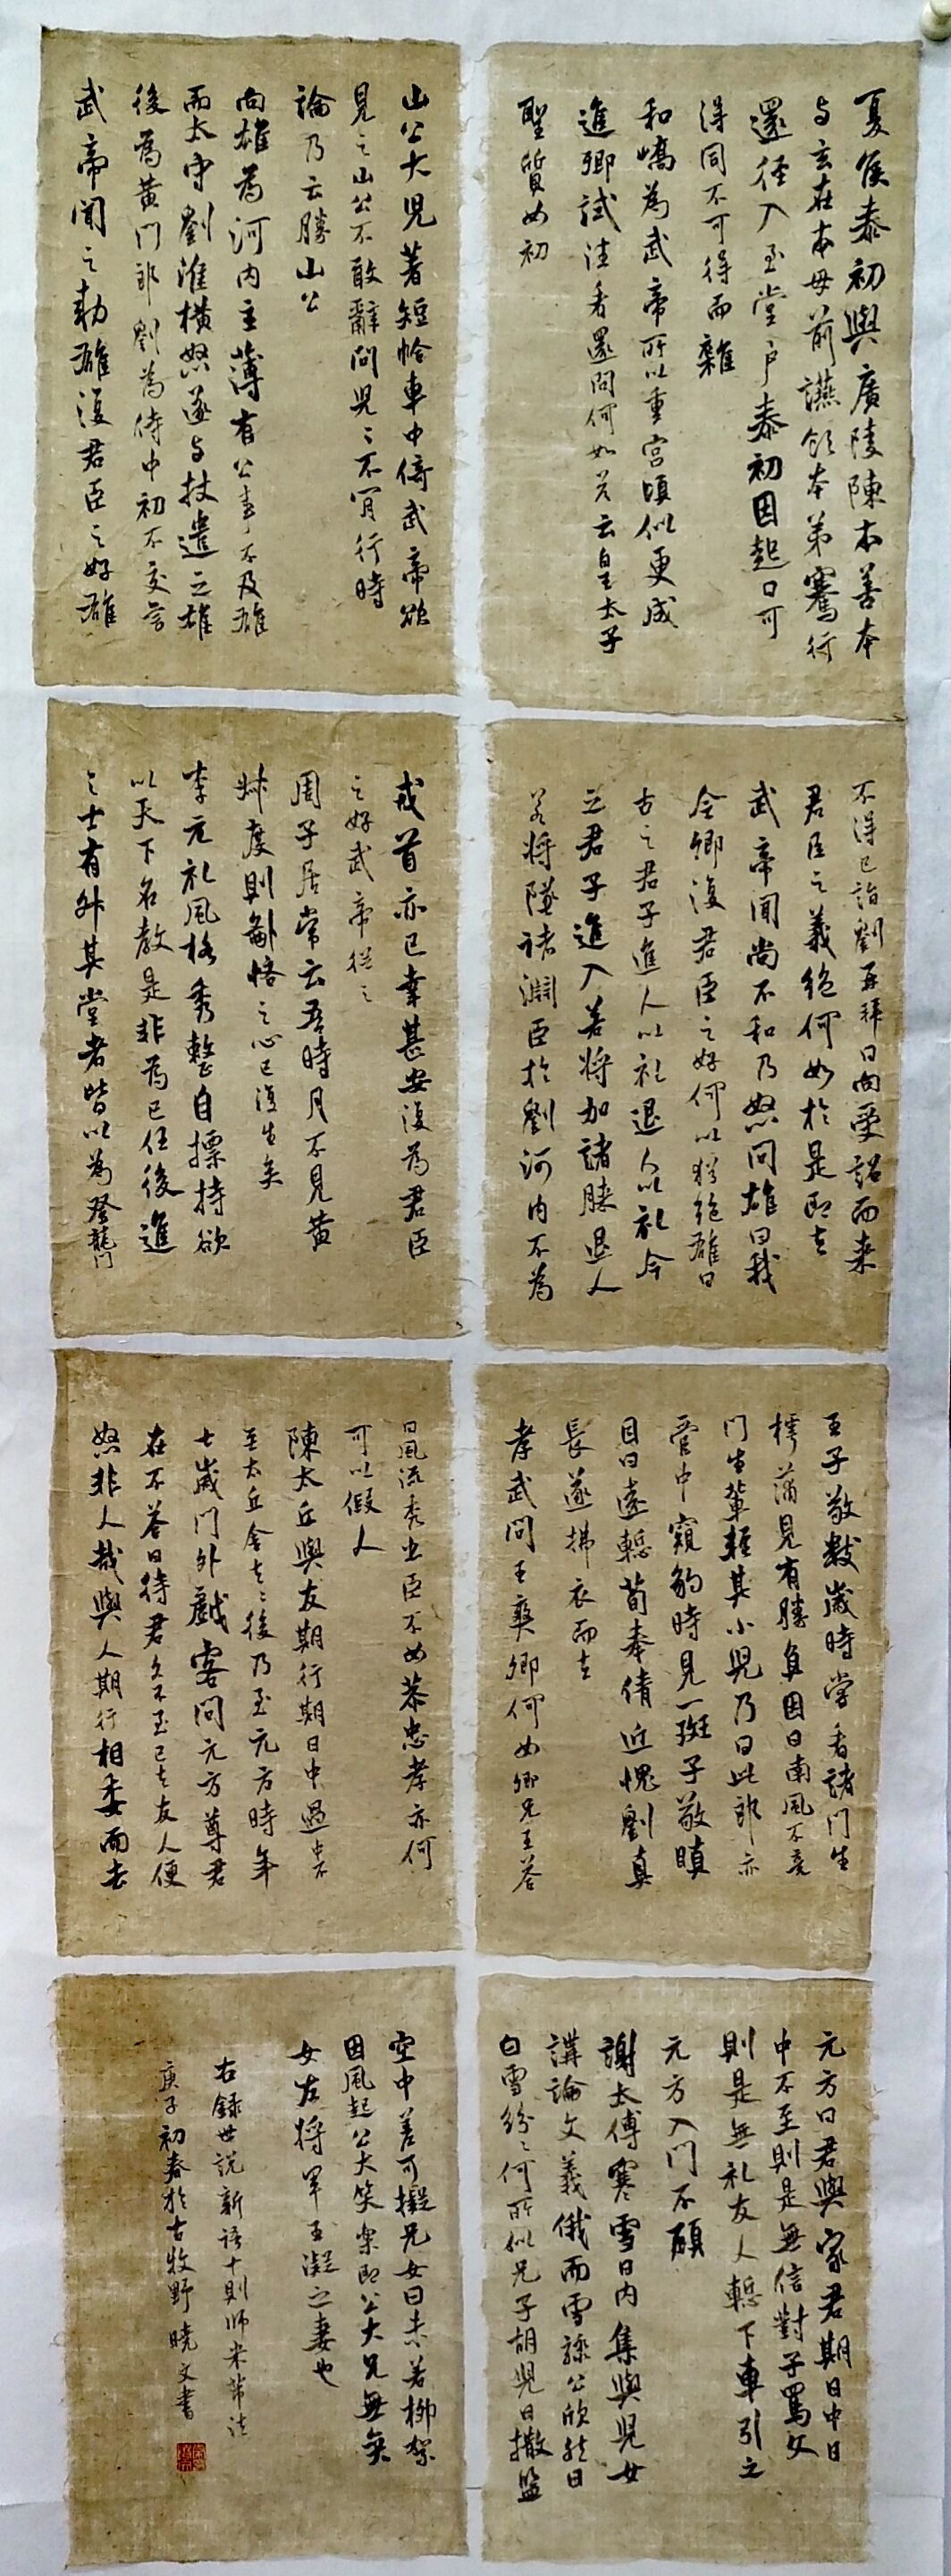 夏侯泰初與廣陵陳本善本
与玄在本母前讌飲本弟騫行
還徑入至堂戶泰初因起曰可
得同不可得而雜
和嶠為武帝所以重宮頃似更成
進卿試往看還問何如答云皇太子
聖質如初
山公大兒著短帢車中倚武帝欲
見之山公不敢辭問兒〻不肎行時
論乃云勝山公
向雄為河內主薄有公事不及雄
而太守劉淮橫怒遂与杖遣之雄
後為黃門郎劉為侍中初不交言
武帝聞之勅雄復君臣之好雄
不得已詣劉再拜曰向受詔而来
君臣之義絕何如於是即去
武帝聞尚不和乃怒问雄曰我
令卿復君臣之好何以猶絕雄曰
古之君子進人以礼退人以礼今
之君子進入若將加諸膝退人
若將隧諸淵臣於劉河內不為
戎首亦已幸甚安復為君臣
之好武帝從之
周子居常云吾時月不見黃
叔度則鄙悋之心已復生矣
李元礼風格秀整自摽持欲
以天下名教是非為己任後進
之士有外其堂者皆以為登龍門
王子敬數歲時嘗看諸門生
樗蒲見有勝負因曰南風不竞
門生輩輕其小兒乃曰此郎亦
管中窺豹時見一斑子敬瞋
目曰遠慙荀奉倩近愧劉真
長遂拂衣而去
孝武問王爽卿何如卿兄王答
曰風流秀出臣不如恭忠孝亦何
可以假人
陳太丘與友期行期日中過中不
至太丘舍去〻後乃至元方時年
七歲門外戯客问元方尊君
在不答曰待君久不至已去友人便
怒非人哉與人期行相委而去
元方曰君與家君期日中日
中不至則是無信對子罵父
則是無礼友人慙下車引之
元方入門不顧
謝太傅寒雪日內集與兒女
講論文義俄而雪驟公欣然曰
白雪紛〻何所似兄子胡兒曰撒盐
空中差可擬兄女曰未若柳絮
因風起公大笑樂即公大兄無奕
女左将軍王凝之妻也
右録世説新語十則师米芾法
庚子初春於古牧野曉文書